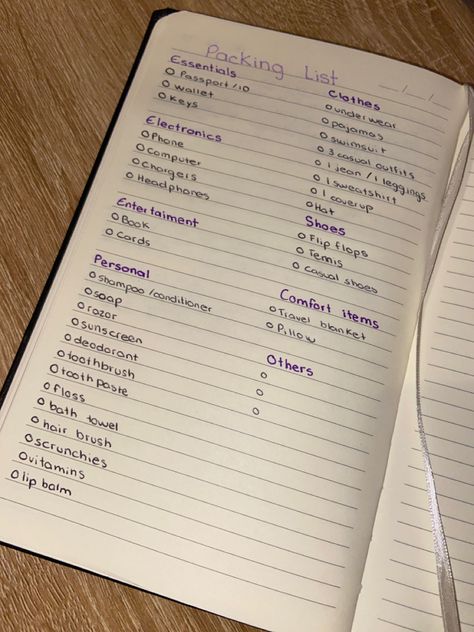 Packing List
Essentials
o Passport/ID
o wallet
o Keys
Electronics
o Phone
o Computer
o Chargers
o Headphones
Entertaiment
o Book
o Cards
Personal
o Shampoo/conditioner
o soap
o razor
o sunscreen
o deodorant
o toothbrush
o tooth paste
o floss
o bath towel
o hair brush
o scrunchies
o vitamins
o lip balm
Clothes
o underwear
o pajamas
o swimsuit
o 3 casual outfits
o 1 jean / 1 leggings
o 1 sweatshirt
o 1 coverup
o Hat
Shoes
o Flip flops
o Tennis
o Casual shoes
Comfort items
o Travel blanket
o Pillow
Others
o
o
o